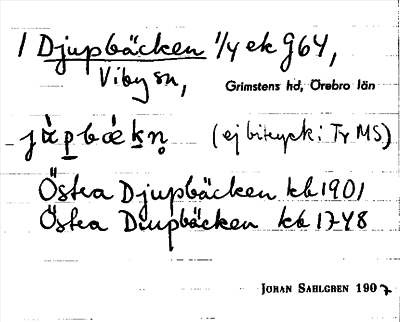 1 Djupbäcken 1/4 ek G64,
Viby sn,
Grimstens hd, Örebro län
(ej bitryck: Tr MS)
Östra Djupbäcken kb 1901
Östra Diupbäcken kb 1748
JOHAN SAHLGREN 1907